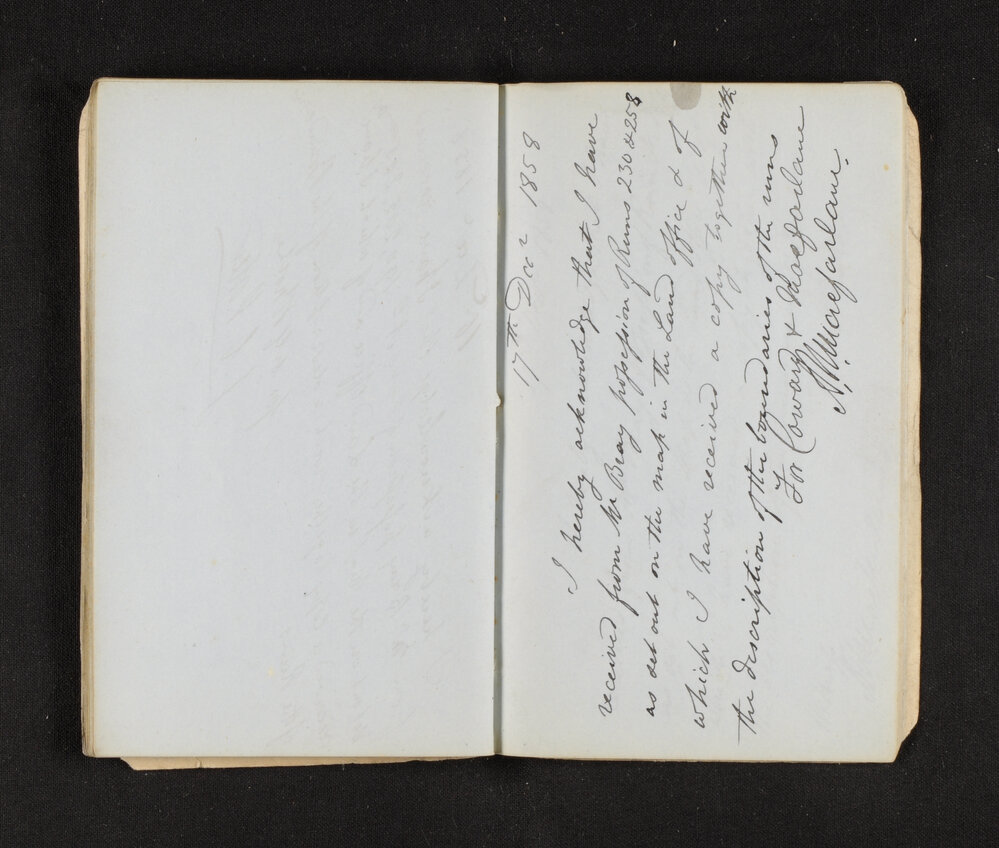 17th Decr 1858
I hereby acknowledge that I have
received from Mr Bray possession of Runs 230 & 258
as set out on the map in the Land Office & of
which I have received a copy together with
the description of the boundaries of the runs
For Coward & Macfarlane
Macfarlane.